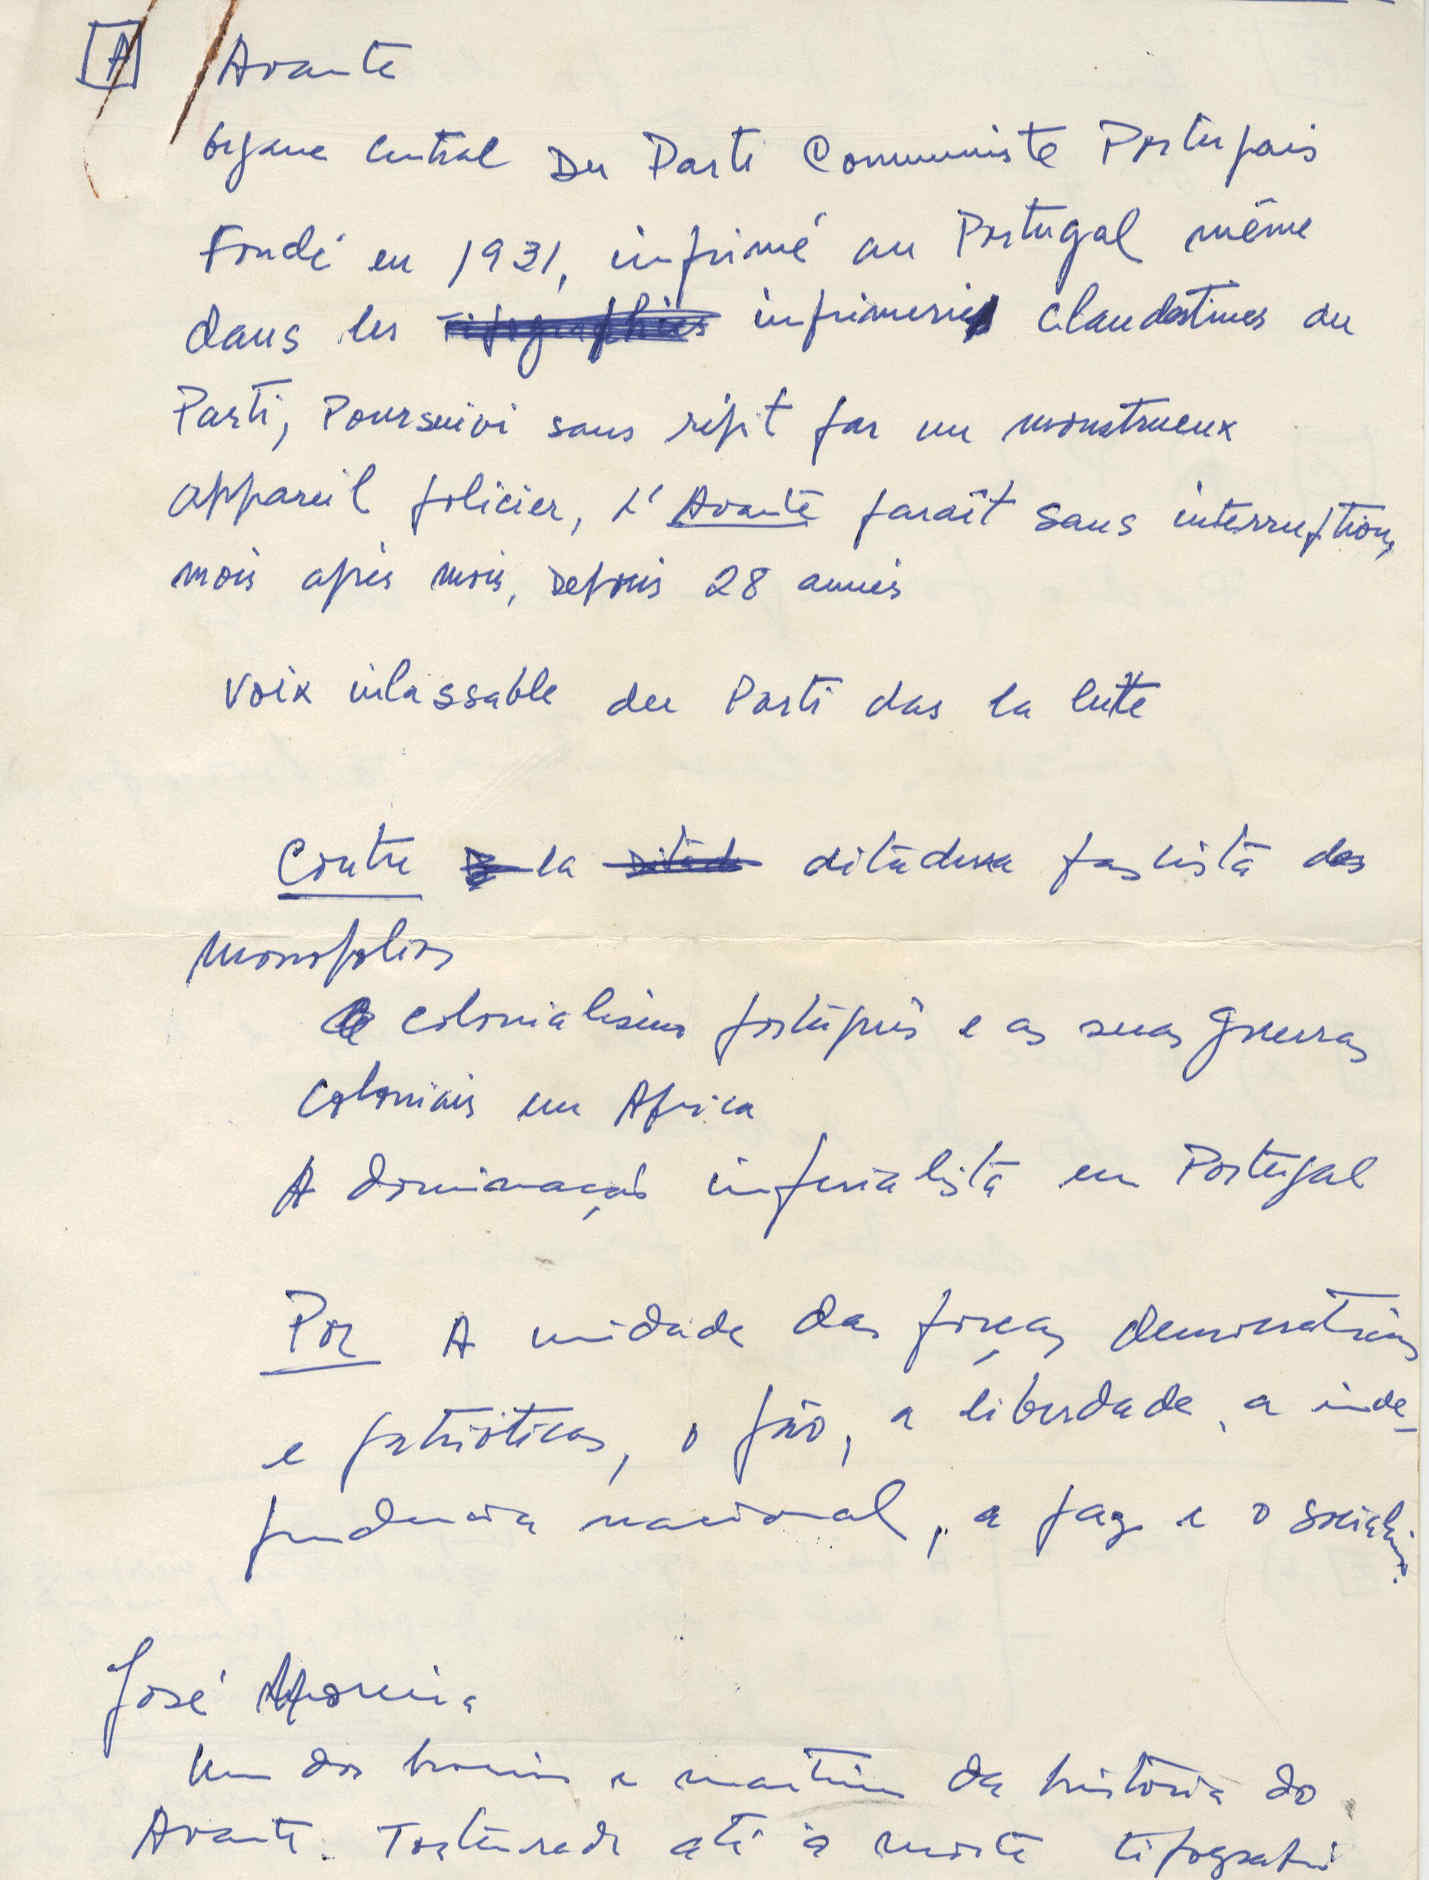 A Avante
Organe Central Du Parti Communiste Portugais
Fondé en 1931, imprimé au Portugal même
dans les tipographies imprimeries clandestines du
Parti, Poursuivi sans répit par un monstrueux
appareil policier, L'Avante paraît sans interruption,
mois après mois, Depuis 28 années
Voix inlassable du Parti das la lutte
Contre la Ditad ditadura fascista dos
monopolios
colonialismo português e as suas guerras
coloniais em Africa
A dominação imperialista em Portugal
Por A unidade das forças democraticas
e patrióticas, o pão, a liberdade, a inde-
pendencia nacional, a paz e o socialismo.
José Moreira
Um dos herois e martires da história do
Avante. Torturado até à morte tipografo